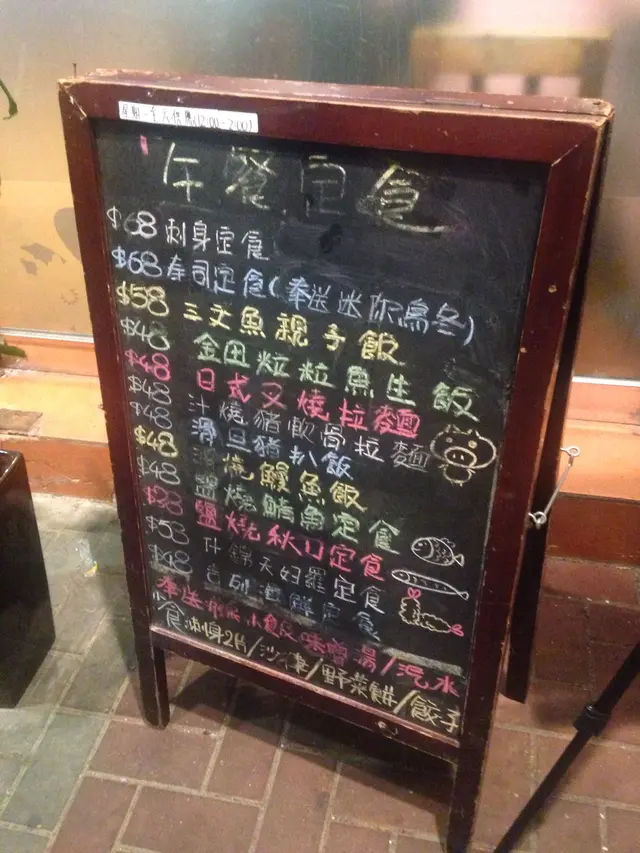 星期一至六供應(12:00-2:00)
午餐定食
$68 刺身定食
$68 寿司定食(奉送迷你烏冬)
$58 三文魚親子飯
$48 金田粒粒魚生飯
$48 日式叉燒拉麵
$48 汁燒豬軟骨拉麵
$48 滑旦豬扒飯
$48 燒鰻魚飯
$48 鹽燒鯖魚定食
$38 鹽燒秋刀定食
$53 什錦天妇羅定食
$48 吉列海鮮定食
奉送 小食 味噌湯/汽水
小食 刺身2片/沙律/野菜餅/餃子